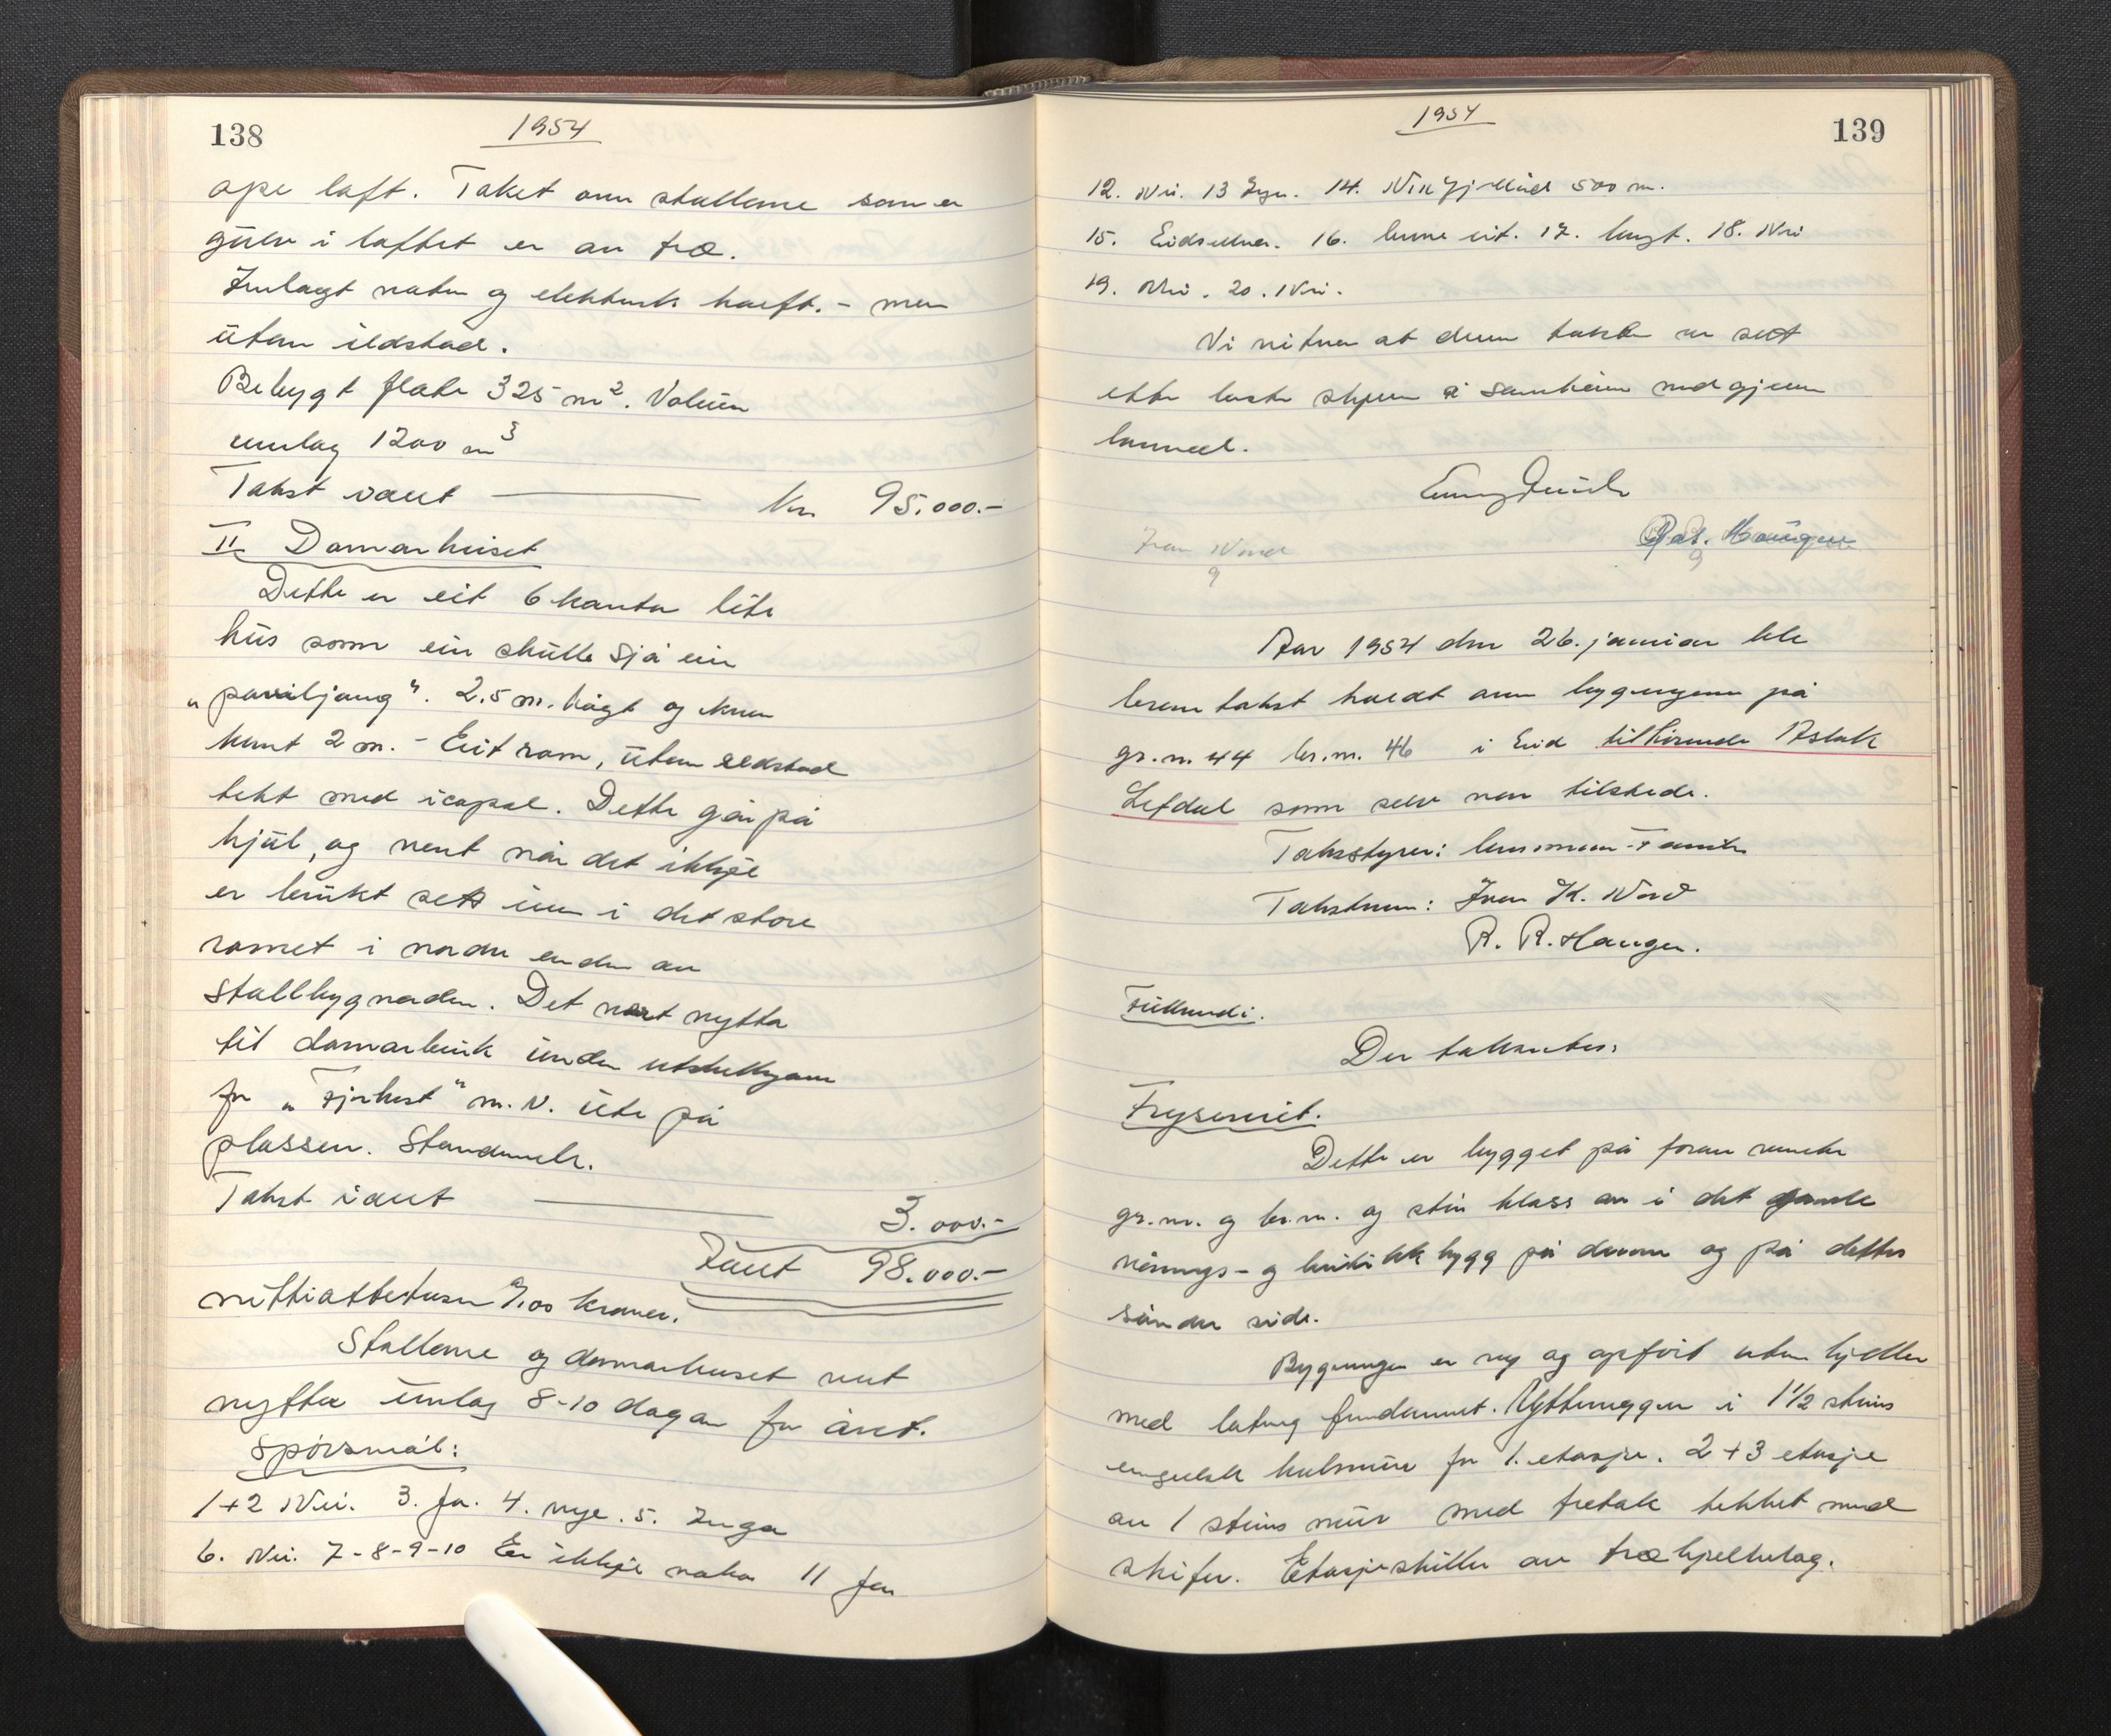 138
1954
ope loft. Taket over stallane som er
gulv i loftet er av tre.
Innlagt vatn og elektrisk kraft. - men
utan ildstad.
Bebygt flate 325 m². Volum
umlag 1200 m³
Takst verdt — kr 95.000.-
II Domarhuset
Dette er eit 6 kanta lite
hus som ein skulle sjå ein
"paviljong". 2.5 m. høgt og kvar
kant 2 m. - Eit rom, utan eldstad
tekt med icopal. Dette går på
hjul, og vert når det ikkje
er brukt sett inn i det store
romet i nordre enden av
stallbygnaden. Det vert nytta
til domarbruk under utstillingane
for "Fjorhest" m.v. ute på
plassen.
Takst verdt — 3.000.-
98.000.-
nittiåttetusen 7/00 kroner.
Stallane og domarhuset vert
nytta umlag 8-10 dagar for året.
Spørsmål:
1+2 Nei. 3. Ja. 4. nye. 5. Inga
6. Nei. 7-8-9-10 Er ikkje 11 Ja
1954
139
12. Nei. 13 14. 500 m.
15. 16. 17. 18. Nei
19. Nei. 20. Nei.
Vi vitner at denne takst er sett
etter beste skjønn i samhøve med
Ivar Nord
Aar 1954 den 26. januar ble
branntakst holdt over bygningene på
gr.n. 44 br.n. 46 i Eid tilhørende Aslak
Lefdal som selv var tilstede.
Takststyrer: lensmann
Takstmenn: Ivar K. Nord
R. R. Haugen.
Der takseres:
Fryseriet.
Dette er bygget på foran nevnte
gr.nr. og br.nr. og står klass av i det gamle
vånings- og butikkbygg på denne og på dettes
søndre side.
Bygningen er ny og oppført uten kjeller
med betong fundament. Yttervegger i 1½ steins
engelsk hulmur for 1. etasje. 2+3 etasje
av 1 steins mur med tretak tekket med
skifer. Etasjeskiller av træbjelkelag.